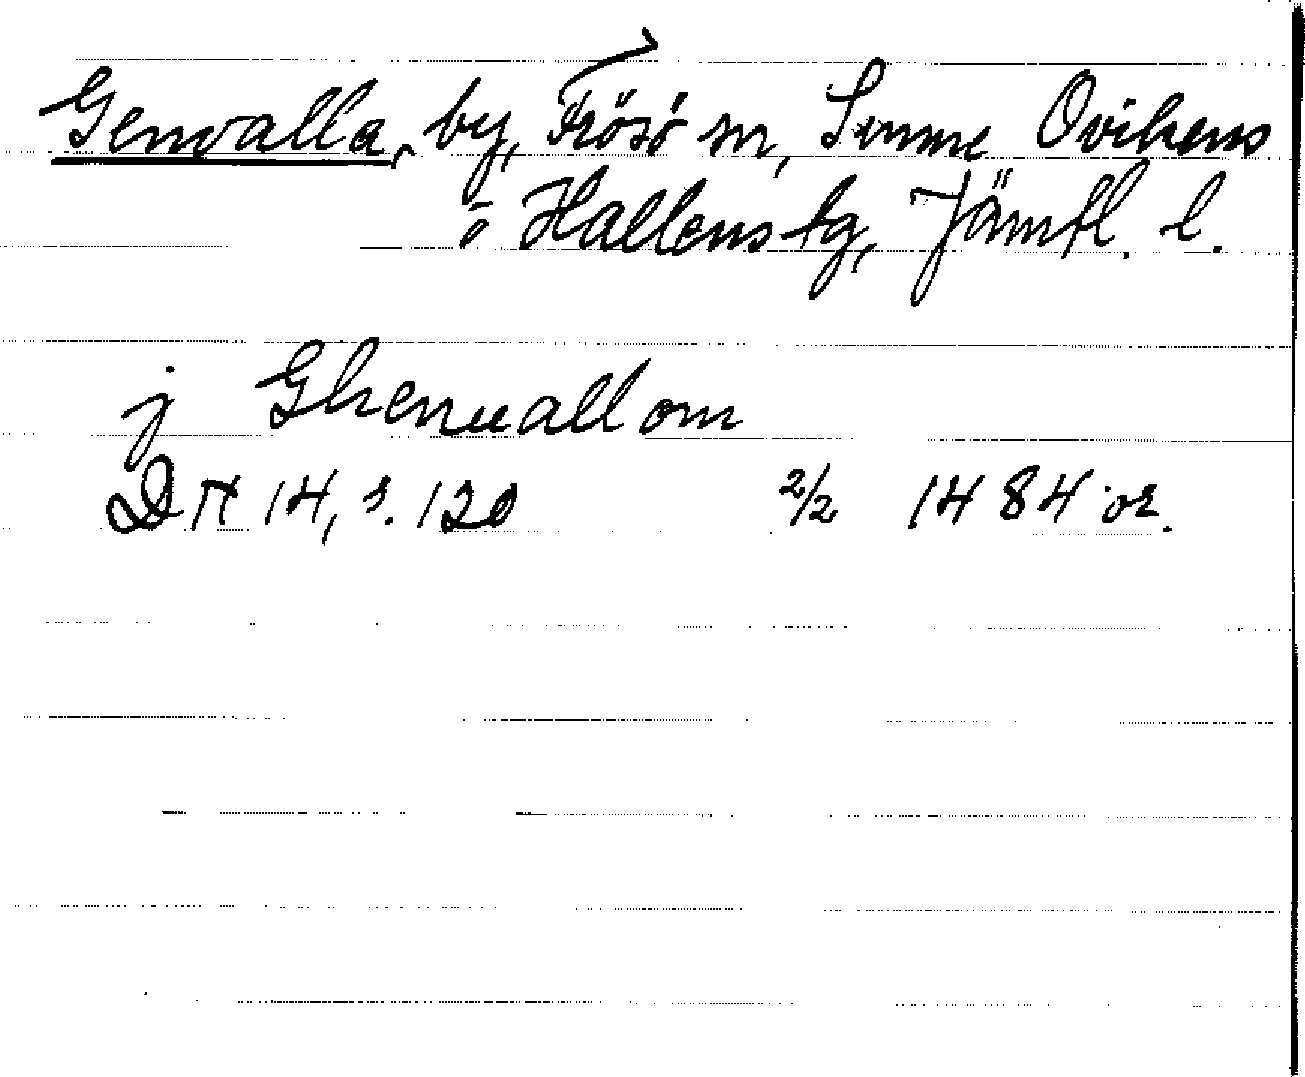 Genvalla, by, Frösö sn, Sunne Ovikens
o Hallens tg, Jämtl. l.
j Ghenuallom
DN 14, s. 120 2/2 1484 or.